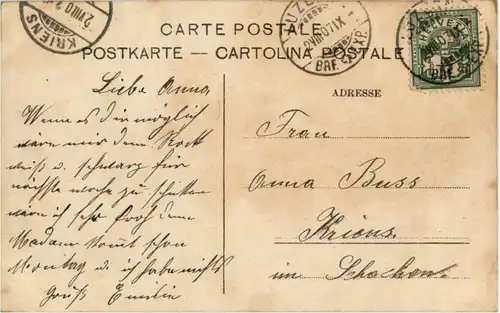 CARTE POSTALE
POSTKARTE — CARTOLINA POSTALE
KRIENS
LUZERN
BRF. EXP.
HELVETIA
ADRESSE
Liebe Anna
Wenn es dir möglich
wäre mir dem Rock
weiß u. schwarz für
nächste woche zu schicken
wäre ich sehr froh denn
Madam kommt schon
Montag u. ich habe nichts
Gruß Emilie
Frau
Anna Buss
Kriens
im Schachen